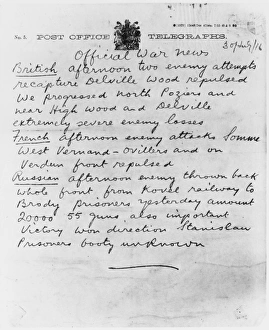 No. 2. POST OFFICE TELEGRAPHS.
30 July/16
Official War news
British afternoon two enemy attempts
recapture Delville Wood repulsed
We progressed North Poziers and
near High Wood and Delville
extremely severe enemy losses
French afternoon enemy attacks Somme
West Vermand-Ovillers and on
Verdun front repulsed
Russian afternoon enemy thrown back
whole front, from Kovel railway to
Brody prisoners yesterday amount
20000 55 guns, also important
Victory won direction Stanislau
Prisoners booty unknown